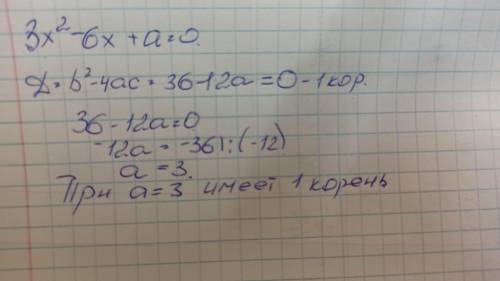 3x²-6x+a=0.
D=b²-4ac=36-12a=0-1кор.
36-12a=0
-12a=-36|:(-12)
a=3.
При a=3 имеет 1 корень